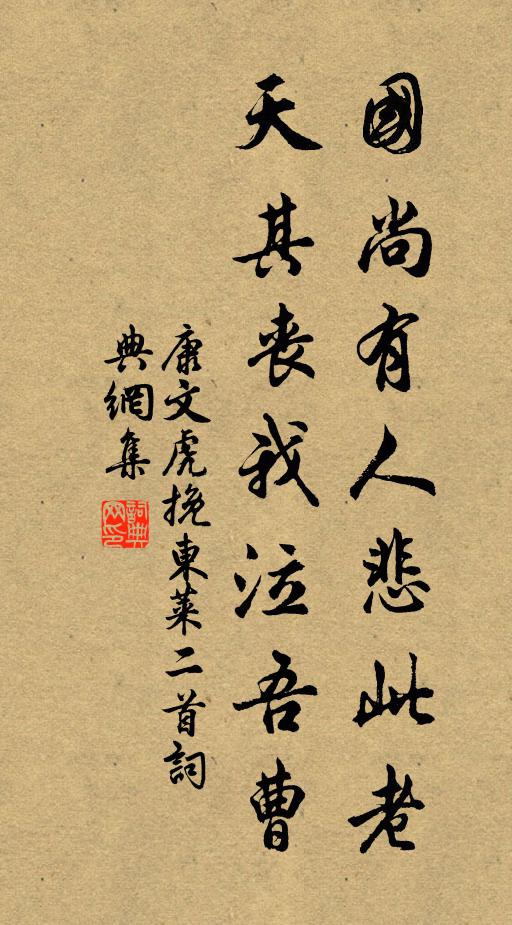 國尚有人悲此老
天其喪我泣吾曹
康文虎挽東萊二首詞
典網集
詞典網印